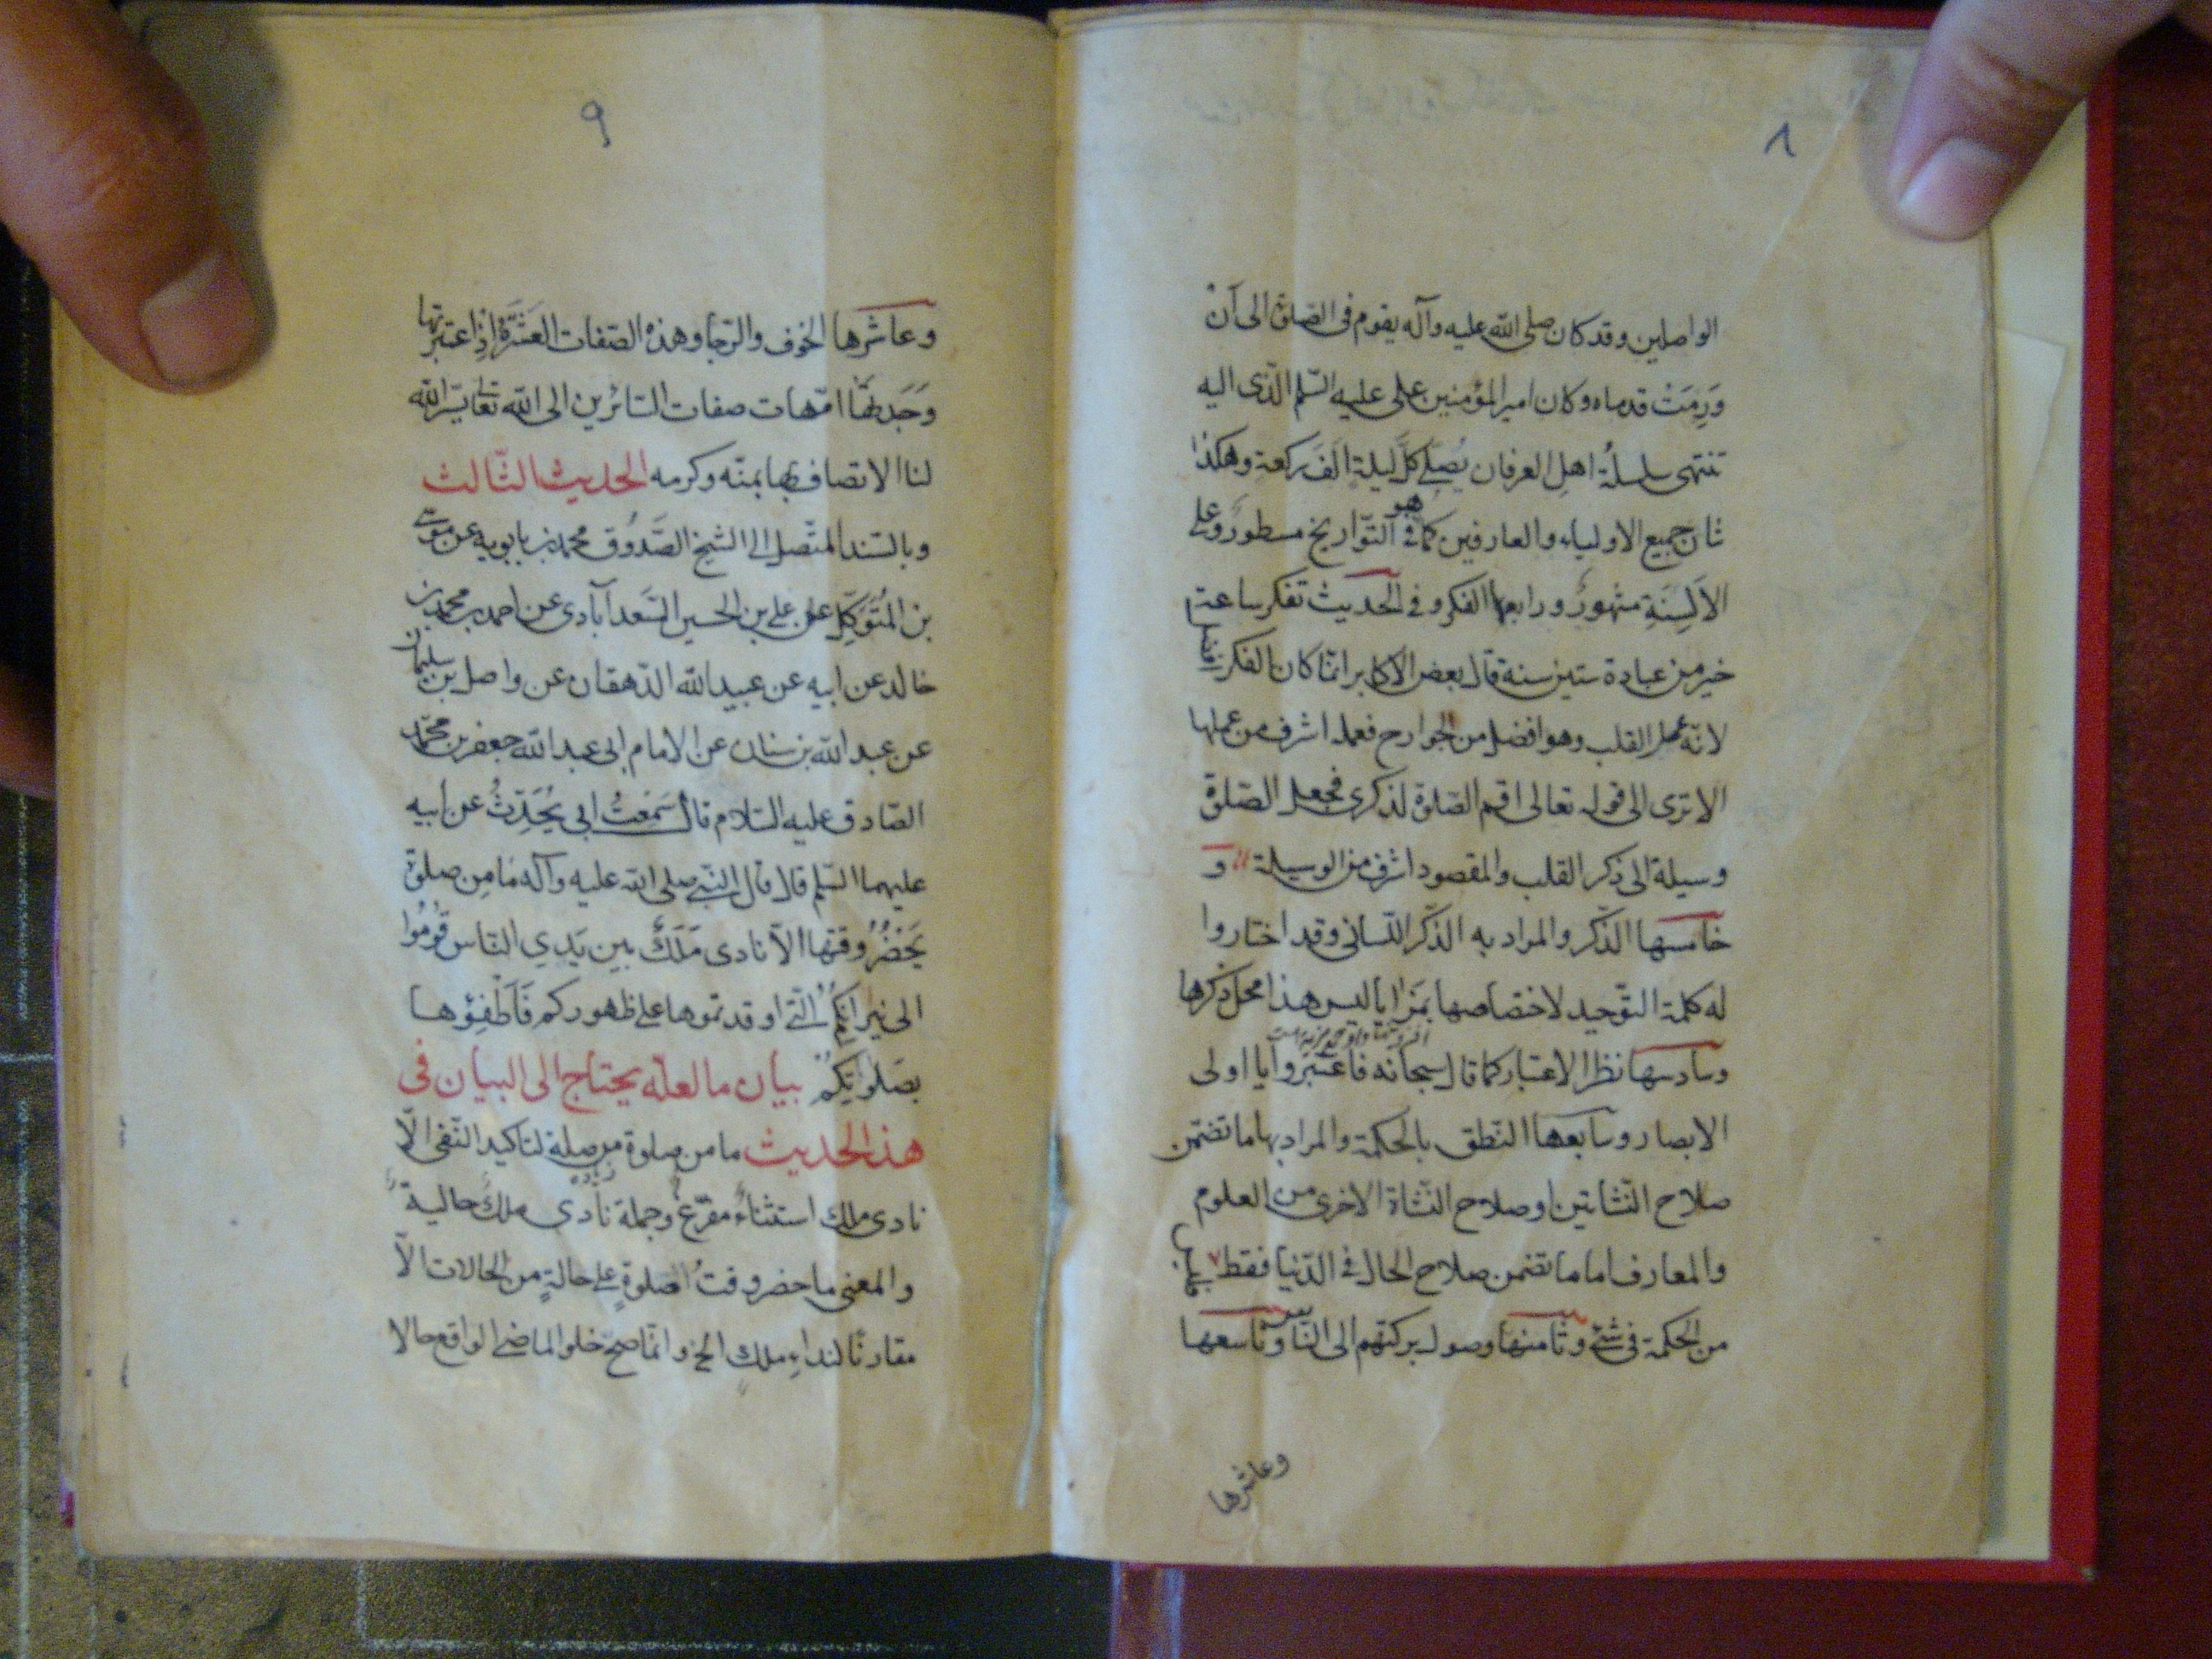 ٨
الواصلين وقد كان صلى الله عليه وآله يقوم فى الصّلوة الى أنْ
وَرِمَتْ قدماه وكان امير المؤمنين على عليه السّلم الّذى اليه
تنتهى سلسلةُ اهلِ العرفان يُصلّے كلَّ ليلةٍ الَفَ ركعة وهكذا
شان جميع الاولياء والعارفين كما هو فى التّواريخ مسطورٌ وعلى
الاَلسِنَةِ مشهورٌ ورابعها الفكر وفى الحديث تفكر ساعة
خير من عبادة ستين سنة قال بعض الاكابر انّما كان الفكر افضل
لانّه عمل القلب وهو افضل من الجوارح فعمله اشرف من عملها
الا ترى الى قوله تعالى اقم الصّلوة لذكرى فجعل الصّلوة
وسيلة الى ذكر القلب والمقصود اشرف من الوسيلة و
خامسها الذّكر والمراد به الذّكر اللّسانى وقد اختاروا
له كلمة التوّحيد لاختصاصها بمَزايا ليس هذا محل ذكرها
وسادسها نظر الاعتبار كما قال سبحانه فاعتبروا يا اولى
الابصار وسابعها النّطق بالحكمة والمراد بها ما تضمّن
صلاح النّشاتين او صلاح النّشاة الاخرى من العلوم
والمعارف اما ما تضمن صلاح الحال فى الدّنيا فقط فليس
من الحكمة فى شئ وثامنها وصول بركتهم الى النّاس وتاسعها
وعاشرها
٩
وعاشرها الخوف والرّجا وهذه الصّفات العَشَرَة اِذا عتبرتها
وَجَدتَها امّهات صفات السّائرين الى الله تعالى يسّر الله
لنا الاتصاف بها بمنّه وكرمه الحديث الثّالث
وبالسّند المتّصل الى الشيخ الصَّدُوق محمد بن بابويه عن موسى
بن المُتَوَكِّل عن على بن الحسين السَّعدآبادى عن احمد بن محمد بن
خالد عن ابيه عن عبيد الله الدّهقان عن واصل بن سليمان
عن عبد الله بن سنان عن الامام ابى عبد الله جعفر بن محمّد
الصّادق عليه السّلام قال سَمِعتُ ابى يُحَدِّثُ عن ابيه
عليهما السّلم قال قال النّبى صلى الله عليه وآله مَا مِن صلوة
يَحْضُرُ وقتها الاّ نادى مَلَكٌ بين يَدِي النّاس قُومُوا
الى نيرانِكُمُ الّتى اوقدتموها على ظهوركم فَاَطْفِؤها
بصَلوتِكُمْ بيان ما لعلّه يحتاج الى البيان فى
هذا الحديث ما من صلوة من صلة لتاكيد النّفى الاّ
نادى ملك استثناءٌ مفرّغ وجملة نادى ملك حالية
والمعنى ما حضر وقتُ الصلوةِ على حالةٍ من الحالات الاّ
مقارنًا لنداءِ ملكٍ الخ وانّما صحّ خلو الماضى الواقع حالا